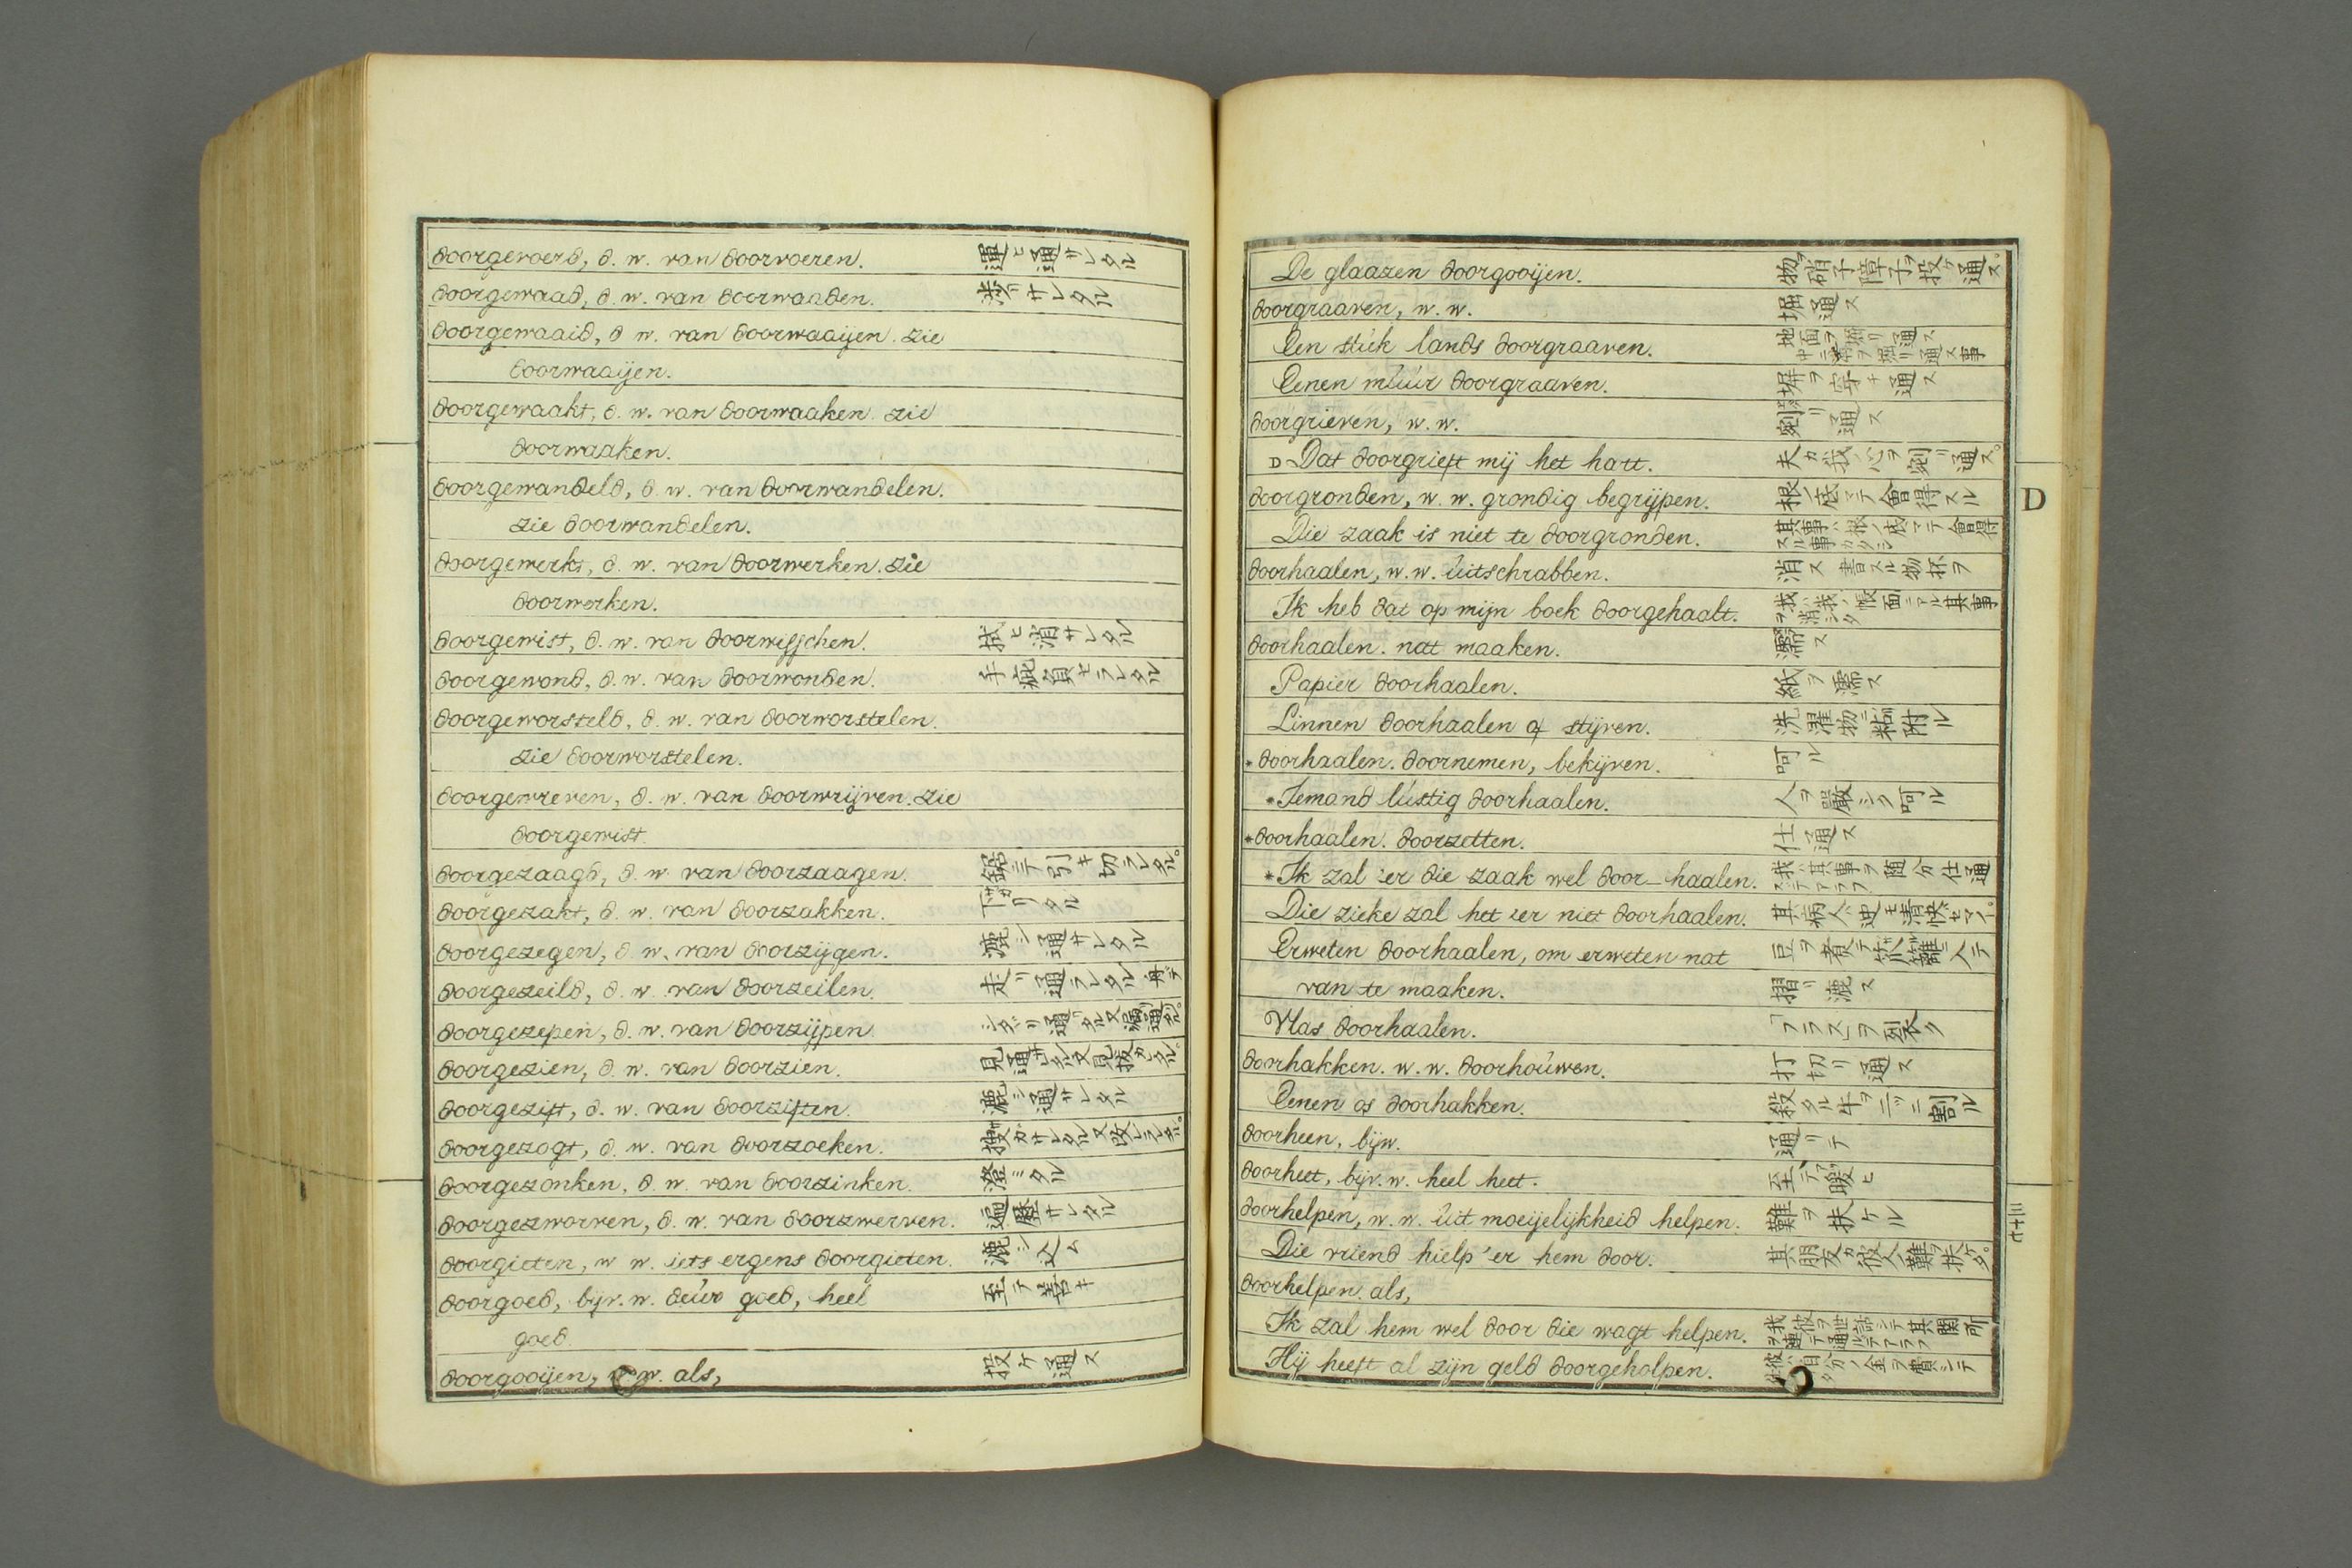 doorgevoerd, d. w. van doorvoeren. 運ヒ通サレタル
doorgewaad, d. w. van doorwaaden.
doorgewaaid, d w. van doorwaaijen. zie
doorwaaijen.
doorgewaakt, d. w. van doorwaaken. zie
doorwaaken.
doorgewandeld, d. w. van doorwandelen.
zie doorwandelen.
doorgewerkt, d. w. van doorwerken. zie
doorwerken.
doorgewist, d. w. van doorwisschen. 拭ヒ消サレタル
doorgewond, d. w. van doorwonden. 手疵負セラレタル
doorgeworsteld, d. w. van doorworstelen.
zie doorworstelen.
doorgewreven, d. w. van doorwrijven. zie
doorgewist.
doorgezaagd, d. w. van doorzaagen. 鋸ニテ引キ切ラレタル。
doorgezakt, d. w. van doorzakken. 下リタル
doorgezegen, d. w. van doorzijgen. 漉シ通サレタル
doorgezeild, d. w. van doorzeilen. 走リ通ラレタル
doorgezepen, d. w. van doorzijpen.
doorgezien, d. w. van doorzien.
doorgezift, d. w. van doorziften. 漉シ通サレタル
doorgezogt, d. w. van doorzoeken.
doorgezonken, d. w. van doorzinken. 澄ミタル
doorgezworven, d. w. van doorzwerven. 遍歴サレタル
doorgieten, w w. iets ergens doorgieten. 漉シ込ム
doorgoed, bijv. w. deúr goed, heel 至テ善キ
goed.
doorgooijen, w. w. als, 投ケ通ス
De glaazen doorgooijen. 物ヲ硝子障子ヲ投ケ通ス。
doorgraaven, w. w. 堀通ス
Een stúk lands doorgraaven. 地面ヲ堀リ通ス
Eenen múúr doorgraaven. 塀ヲ穿キ通ス
doorgrieven, w. w. 劍リ通ス
D Dat doorgrieft mij het hart. 夫カ我心ヲ劍リ通ス。
doorgronden, w. w. grondig begrijpen. 根ノ底マテ會得スル
D
Die zaak is niet te doorgronden. 其事ハ根ノ底マテ會得スル事カタシ
doorhaalen, w. w. úitschrabben. 消ス 書スル物抔ヲ
Ik heb dat op mijn boek doorgehaalt. 我ハ我ノ帳面ニアル其事ヲ消シタ
doorhaalen. nat maaken. 濡ス
Papier doorhaalen. 紙ヲ濡ス
Linnen doorhaalen of stijven. 洗濯物ニ粘附ル
* doorhaalen. doornemen, bekijven. 呵ル
* Iemand lústig doorhaalen. 人ヲ嚴シク呵ル
* doorhaalen. doorzetten. 仕通ス
* Ik zal 'er die zaak wel door-haalen. 我ハ其事ヲ随分仕通スデアラフ
Die zieke zal het 'er niet doorhaalen. 其病人ハ迚モ清快セマイ。
Erweten doorhaalen, om erweten nat 豆ヲ煮テ笊籬ニ入テ
van te maaken. 摺リ漉ス
Vlas doorhaalen. 「フラス」ヲ
doorhakken. w. w. doorhoúwen. 打切リ通ス
Eenen os doorhakken. 殺タル牛ヲ二ツニ割ル
doorheen, bijw. 通リテ
doorheet, bijv. w. heel heet. 至テ暖ヒ
doorhelpen, w. w. úit moeijelijkheid helpen. 難ヲ扶ケル
七十三
Die vriend hielp 'er hem door. 其朋友カ彼人ノ難ヲ扶ケタ。
doorhelpen. als,
Ik zal hem wel door die wagt helpen. 我彼ヲ世話シテ其関所ヲ連テ通ルデアラフ
Hij heeft al zijn geld doorgeholpen. 彼ハ自分ノ金ヲ費シテ